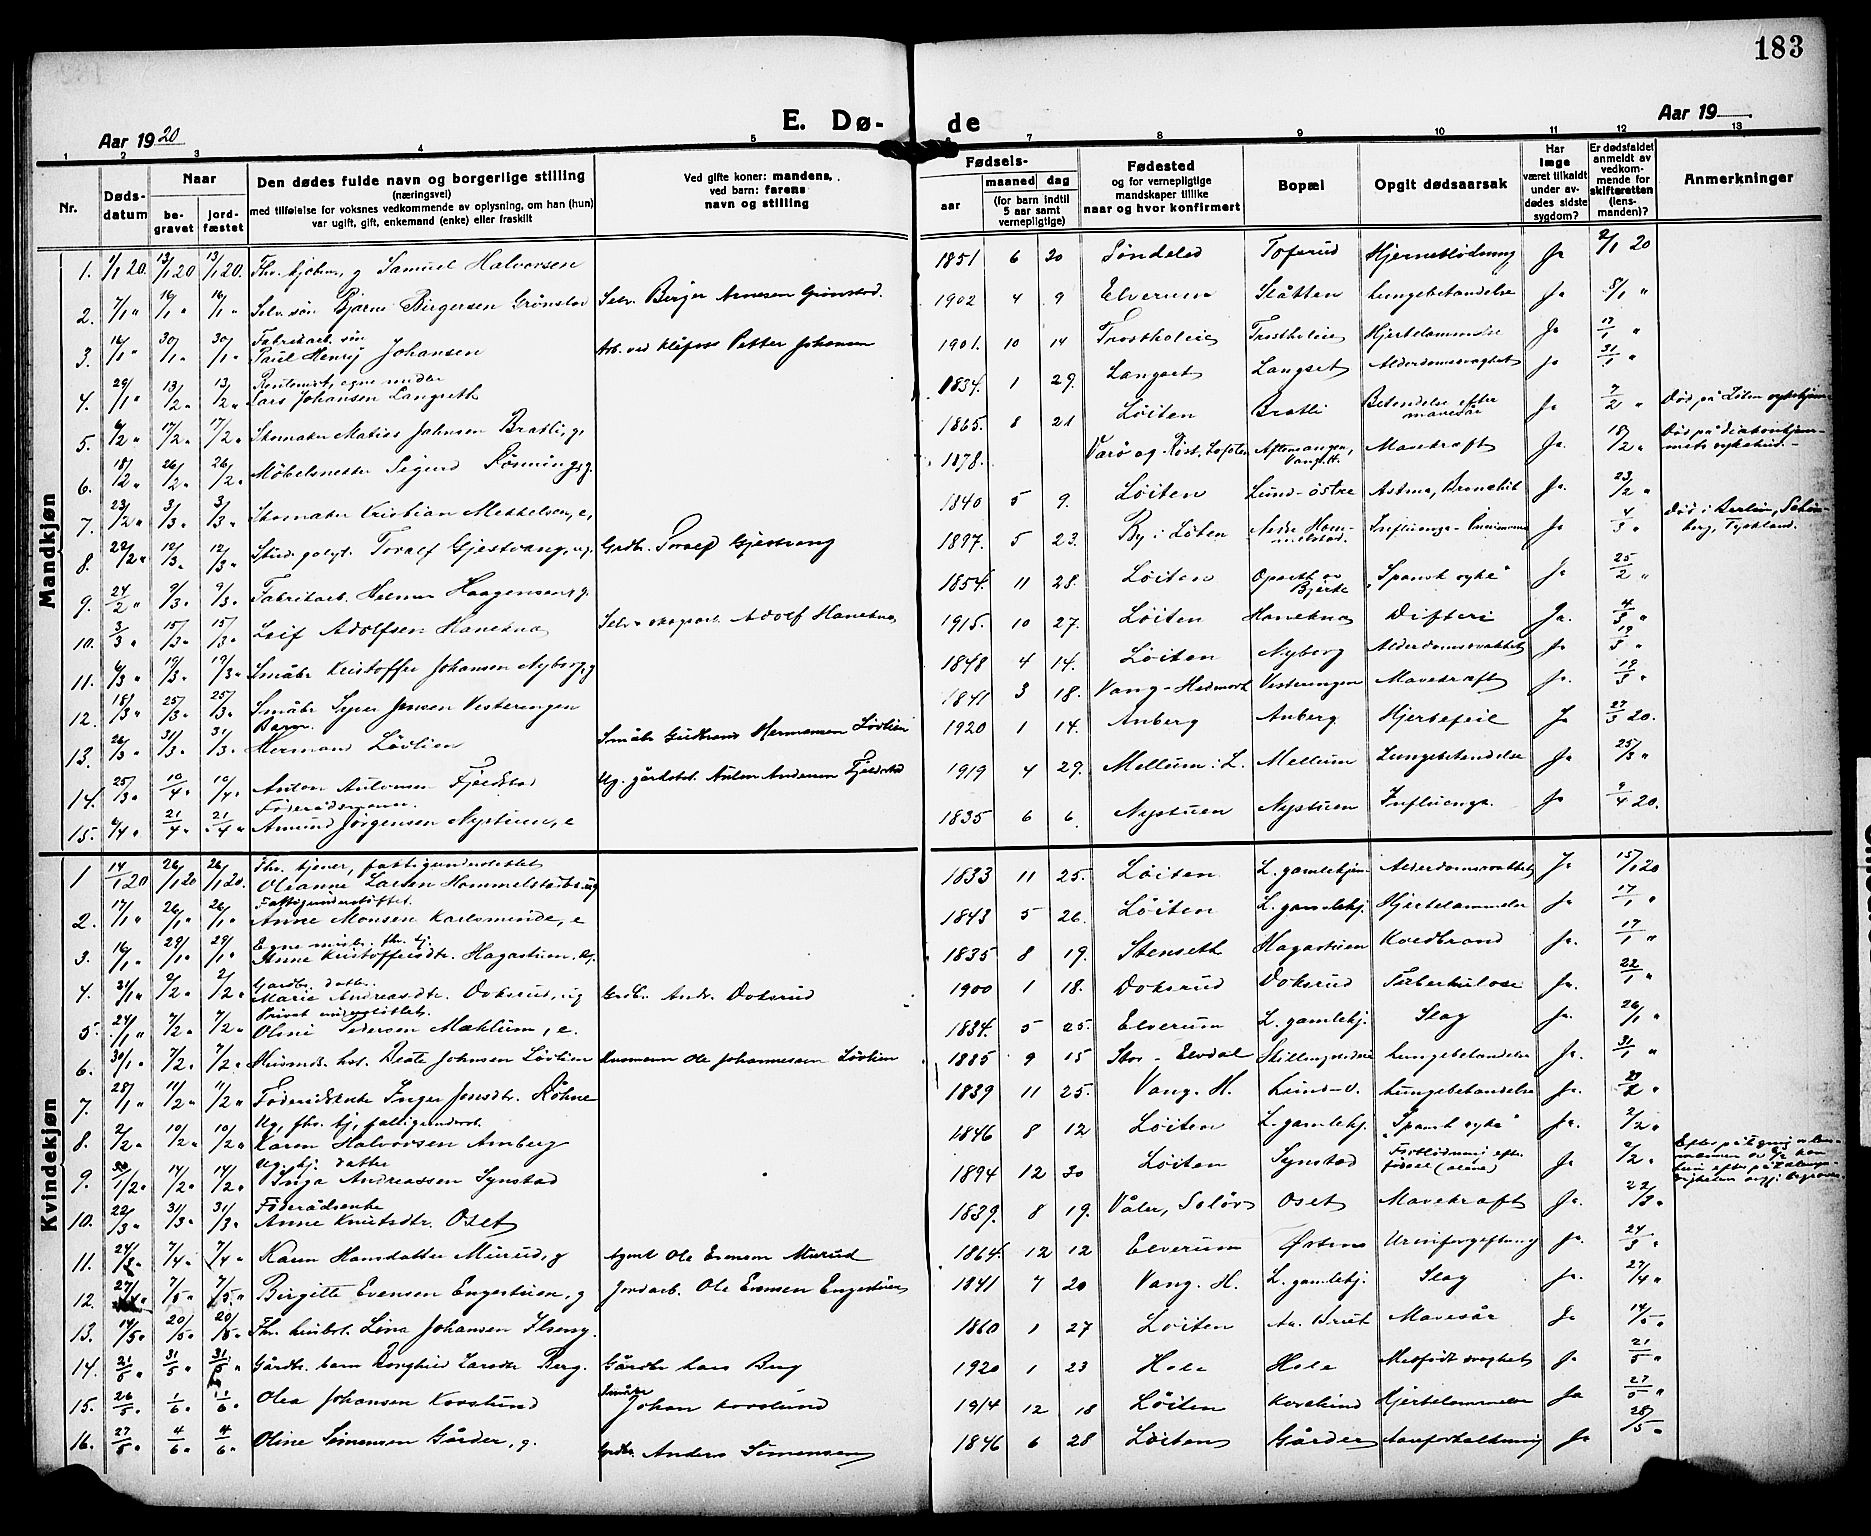 183
E. Døde
Aar 1920
Aar 19
1 2 3 4 5 7 8 9 10 11 12 13
Nr.
Dødsdatum
Naar
begravet
jordfæstet
Den dødes fulde navn og borgerlige stilling
(næringsvei)
med tilføielse for voksnes vedkommende av oplysning, om han (hun)
var ugift, gift, enkemand (enke) eller fraskilt
Ved gifte koner: mandens,
ved barn: farens
navn og stilling
Fødsels-
aar
maaned dag
(for barn indtil
5 aar samt
vernepligtige)
Fødested
og for vernepligtige
mandskaper tillike
naar og hvor konfirmert
Bopæl
Opgit dødsaarsak
Har
læge
været tilkaldt
under avdødes sidste
sygdom?
Er dødsfaldet
anmeldt av
vedkommende for
skifteretten
(lensmanden)?
Anmerkninger
Mandkjøn
1. 1/1 20. 13/1 20 13/1 20. g Samuel Halvorsen 1851 6 20 Søndeled Toferud Hjerneblødning Ja 2/1 20
2. 7/1 " 16/1 " 16/1 " Selv. søn Bjarne Birgersen Selv. Birger Arnesen 1902 4 9 Elverum Slåtten Lungebetændelse Ja 8/1 "
3. 16/1 " 30/1 " 30/1 " Fabrikarb. søn Paul Henry Johansen Arb. ved Klefoss Petter Johansen 1901. 10 14 Hjertelammelse Ja 17/1 "
4. 29/1 " 13/2 " 13/2 " egne midler Lars Johansen Langseth 1834. 1 29. Langset Langset Alderdomssvaghet Ja 31/1 "
5. 6/2 " 17/2 " 17/2 " Skomaker Matias Johnsen Bratli, g. 1865. 8 21 Løiten Bratli Betendelse efter mavesår Ja 7/2 " Død på Løten sykehjem
6. 18/2 " 26/2 " 26/2 " Sigurd g. 1878. Værø og Røst, Lofoten Vang. H. Mavekræft Ja. 18/2 " Død på diakonhjemmets sykehus.
7. 23/2 " 3/3 " 3/3 " Skomaker Kristian Mikkelsen, e, 1840 5 9. Løiten Lund-østre Astma, Bronkit Ja. 23/2 "
8. 22/2 " 12/3 " 12/3 " Stud. polyt. Toralf Gjestvang, ug. Grdbr. Toralf Gjestvang 1897. 5 23. By i Løten Influenza - Ja 4/3 " Død i Berlin, Tyskland.
9. 24/2 " 9/3 " 9/3 " Fabrikarb. Helmer Haagensen, g. 1854. 11 28. Løiten Bjerke "Spansk syke" Ja 25/2 "
10. 3/3 " 15/3 " 15/3 " Leif Adolfsen Hanekna Adolf Hanekna 1915. 10 27. Løiten Hanekna Difteri Ja. 4/3 "
11. 6/3 " 19/3 " 19/3 " Småbr. Kristoffer Johansen Nyborg, g 1848 4 14. Løiten Nyborg Ja 19/3 "
12. 18/3 " 25/3 " 25/3 " Småbr. Syver Jensen Vesterengen 1841 3 18. Vang - Hedmark Vesterengen Mavekræft Ja. 19/3 "
13. 26/3 " 31/3 " 31/3 " Barn. Hermand Løvlien Småbr. Gudbrand Hermansen Løvlien 1920 1 14. Anberg Anberg Hjertefeil Ja 27/3 20.
14. 25/3 " 10/4 " 10/4 " Anton Antonsen Fjeldstad Ug. Anton Andersen Fjeldstad 1919 4 29. Mellum i L. Mellum Lungebetændelse Ja 25/3 "
15. 6/4 " 21/4 " 21/4 " Føderådsmann. Amund Jørgensen Nystuen, e 1835 6 6. Nystuen Nystuen Influenza. Ja 9/4 20.
Kvindekjøn
1 14/1 20 26/1 20 26/1 20. Oleanne Larsen 1833 11 25. Løiten L. gamlehjem Ja 15/1 20
2. 17/1 " 26/1 " 26/1 " Fattigunderstøttet. Anne Monsen Karlsminde, e 1843 5 26. Løiten L. gamlehj. Hjertelammelse Ja 17/1 "
3. 16/1 " 29/1 " 29/1 " Anne Kristoffersdtr. Hagastuen 1835 8 19. Stenseth Hagastuen Koldbrand Ja. 17/1 "
4. 21/1 " 2/2 " 2/2 " Gardbr. datter. Marie Andreasdtr. Doksrud, ug Grdbr. Andr. Doksrud 1900 1 18. Doksrud Doksrud Tuberkulose Ja. 22/1 "
5 24/1 " 7/2 " 7/2 " Privat understøttet. Oline Pedersen Mæhlum, e. 1834. 5 25. Elverum L. gamlehj. Slag Ja. 26/1 "
6. 30/1 " 7/2 " 7/2 " Beate Johnsen Løvlien Ole Johannessen Løvlien 1885 9 15 Stor-Elvdal Lungebetændelse Ja. 31/1 "
7. 28/1 " 11/2 " 11/2 " Føderådsenke Inger Jensdtr. 1839 11 25. Vang. H. Lund-v. Lungebetændelse Ja.
8. 2/2 " 10/2 " 10/2 " Ug, Karen Halvorsen Amberg 1846 8 12 Løiten L. gamlehj. "Spansk syke" Ja. 2/2 "
9. 14/2 " 14/2 " Inga Andreassen Synstad 1894 12 30 Løiten Synstad Forblødning efter fødsel Ja 2/2 "
10. 22/3 " 31/3 " 31/3 " Føderådsenke Anne Knutsdtr. Oset 1839. 8 19. Våler, Solør Oset Mavekræft Ja. 22/3 "
11. 24/3 " 7/4 " 7/4 " Karen Hansdatter Murud, g Ole Evensen Murud 1864. 12 12 Elverum Urinforgiftning Ja. 24/3 "
12. 27/4 " 7/5 " 7/5 " Birgitte Evensen Engestuen, g Jordarb. Ole Evensen Engestuen 1841 7 20 Vang. H. L. gamlehj. Slag Ja. 27/4 "
13. 14/5 " 20/5 " 20/5 " Lina Johansen 1860 1 27 Løiten Mavesår Ja 14/5 "
14. 21/5 " 31/5 " 31/5 " Gårdbr. barn Borghild Larsdtr Berg. Gårdbr Lars Berg 1920 1 23 Hole Hole Medfødt svaghet Ja 21/5 "
15. 26/5 " 1/6 " 1/6 " Olea Johansen Korslund Småbr Johan Korslund 1914 12 18 Løiten Korslund Hjertelammelse Ja 27/5 "
16. 27/5 " 4/6 " 4/6 " Oline Simensen Gårder, g. Grdbr. Anders Simensen 1846 6 28 Løiten Gårder Aareforkalkning Ja 28/5 "